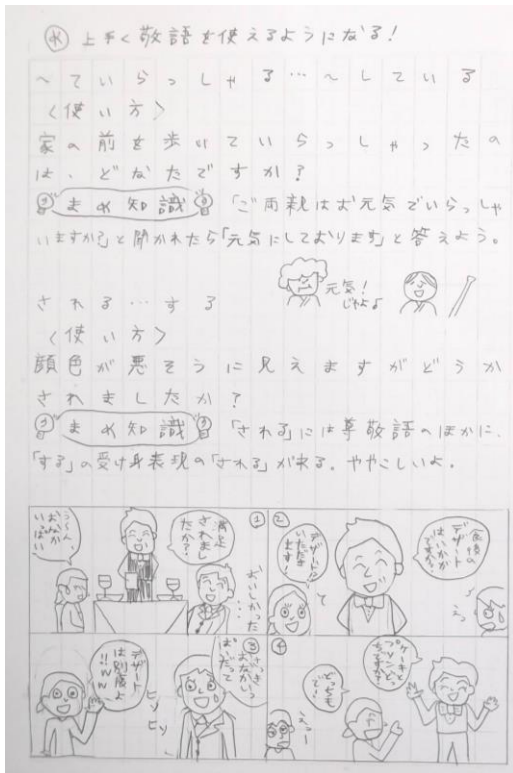 ㊌ 上手く敬語を使えるようになる!
~ていらっしゃる…~している
〈使い方〉
家の前を歩いていらっしゃったの
は、どなたですか?
まめ知識 「ご両親はお元気でいらっしゃ
いますか?」と聞かれたら「元気にしております」と答えよう。
元気!
じゃよ♪
される…する
〈使い方〉
顔色が悪そうに見えますがどうか
されましたか?
まめ知識 「される」には尊敬語のほかに、
「する」の受け身表現の「される」が来る。ややこしいよ。
①
満足
されまし
たか?
う〜ん、
おなか
いっぱい
おいしかった
…
②
食後の
デザート
はいかが
ですか?
デザート!!
いただき
ます!
えっ
③
さっき
おなかいっ
ぱいだって
…
デザート
は別腹よ
!!ww
ヒソ
ヒソ
④
ケーキと
プリンどっ
ちにしますか?
どっちも
で!!
えぇー